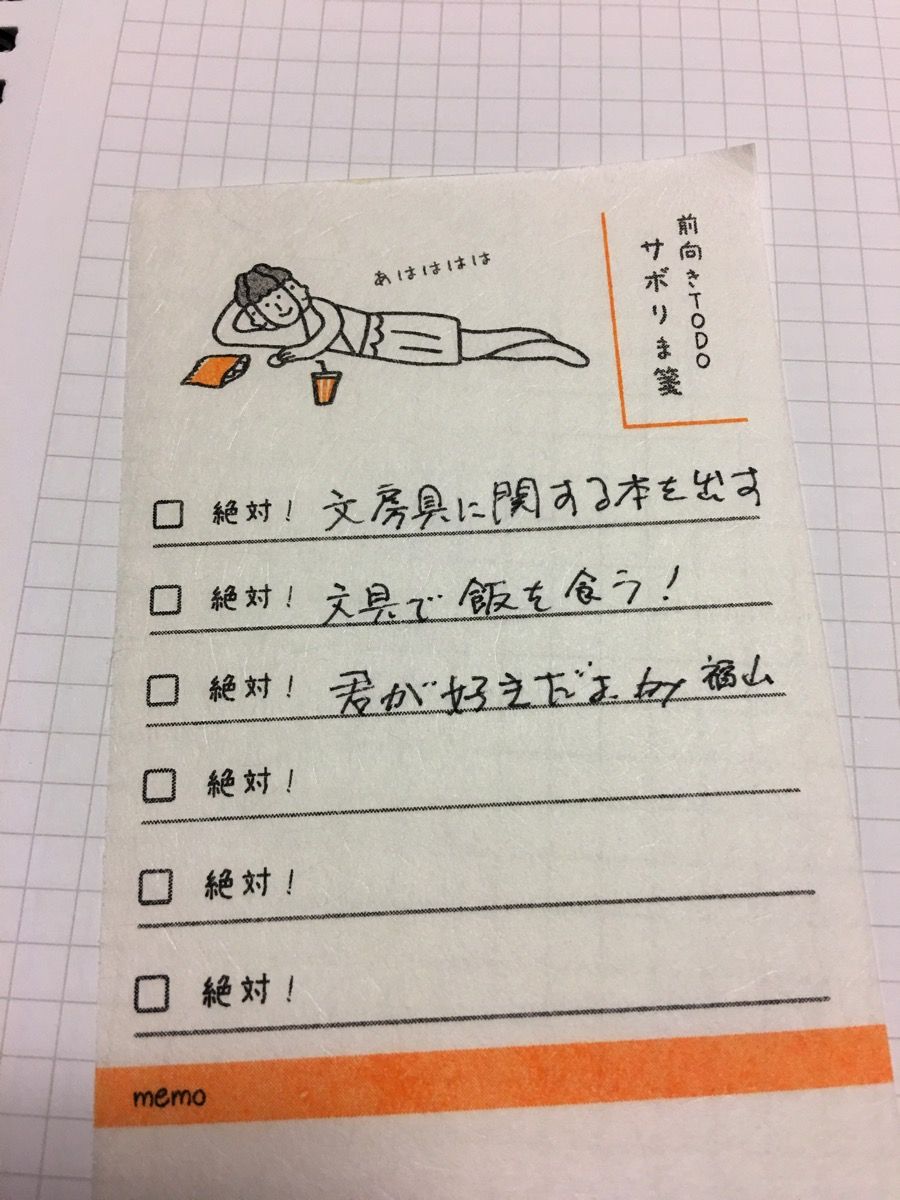 前向きTODO
サボりま箋
あはははは
絶対! 文房具に関する本を出す
絶対! 文具で飯を食う!
絶対! 君が好きだよ by 福山
絶対!
絶対!
絶対!
memo